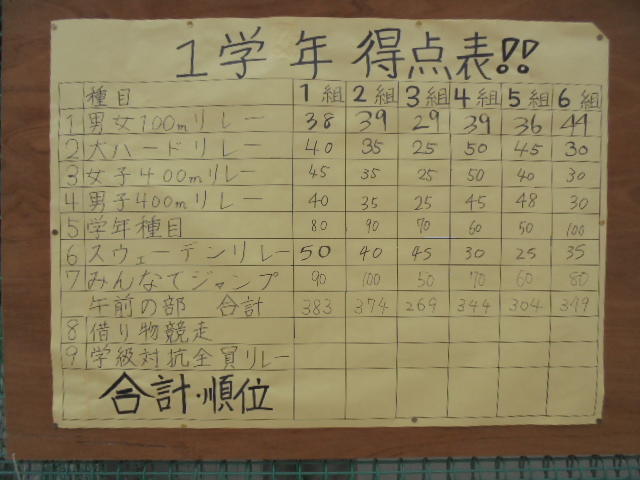 1学年得点表!!
種目 1組 2組 3組 4組 5組 6組
1 男女100mリレー 38 39 29 39 36 44
2 大ハードリレー 40 35 25 50 45 30
3 女子400mリレー 45 35 25 50 40 30
4 男子400mリレー 40 35 25 45 48 30
5 学年種目 80 90 70 60 50 100
6 スウェーデンリレー 50 40 45 30 25 35
7 みんなでジャンプ 90 100 50 70 60 80
午前の部 合計 383 374 269 344 304 349
8 借り物競走
9 学級対抗全員リレー
合計・順位